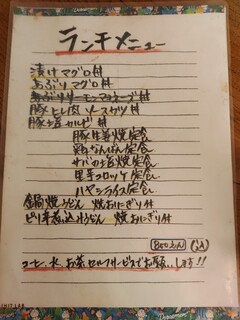 ランチメニュー
漬けマグロ丼
あぶりマグロ丼
あぶりサーモンマヨネーズ丼
豚ヒレ肉ソースカツ丼
豚塩カルビ丼
豚生姜焼定食
鶏なんばん定食
サバの塩焼定食
里芋コロッケ定食
ハヤシライス定食
鍋焼うどん 焼おにぎり付
ピリ辛煮込みうどん 焼おにぎり付
800えん
コーヒー、水、お茶セルフサービスでお願いします!!